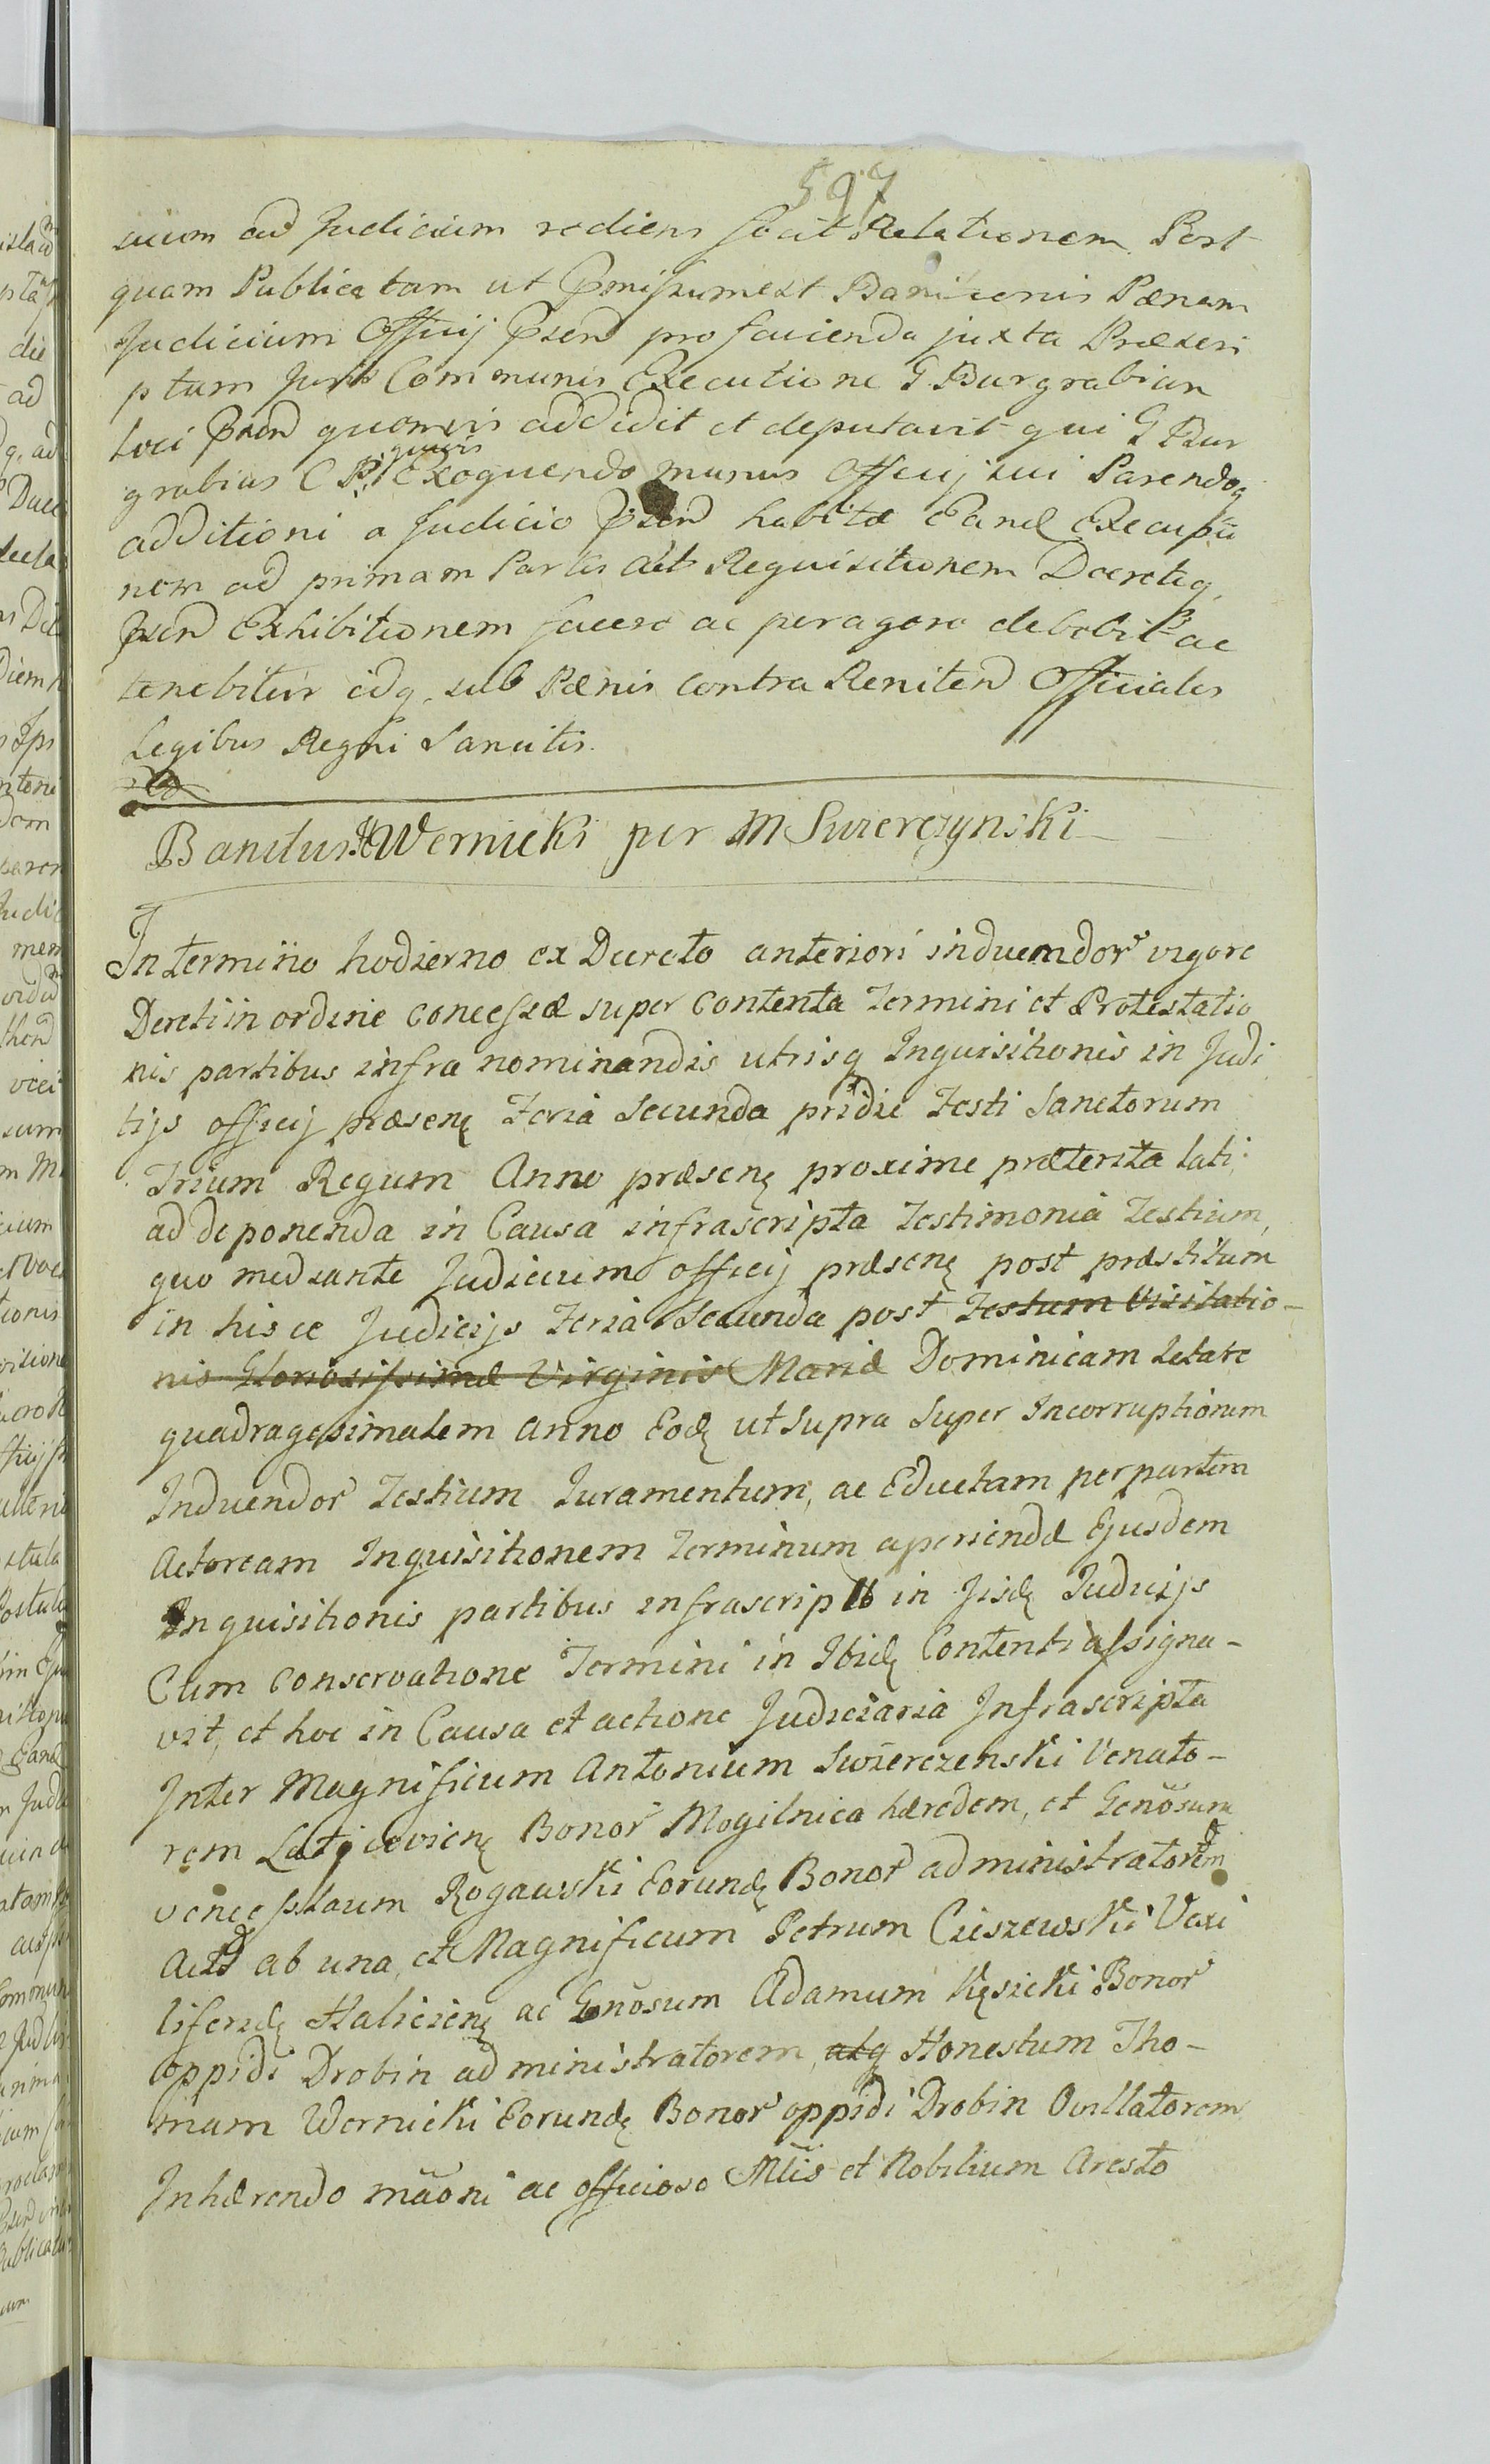 597
suum ad Judicium rediens fecit Relationem. Post
quam Publicatam ut Pmissum est Banitionis Pænam
Judicium Officij Psen pro facienda juxta Præscri
ptum Juris Communis Executione G. Burgrabiam
loci Psen quemvis addidit et deputavit qui G Bur
grabius C P. quivis Exequendo munus Officij sui Parendoq
additioni a Judicio Psen habitæ Eand Executio
nem ad primam Partis Act Requisitionem Decretiq,
Psen Exhibitionem facere ac peragere debebit ac
tenebitur idq, sub Pænis contra Reniten Officiales
Legibus Regni Sancitis.
Banitus Wernicki per M Swierczynski
In termino hodierno ex Decreto anteriori induendor vigore
Decreti in ordine concessæ super contenta Termini et Protestatio
nis partibus infra nominandis utrisq Inquisitionis in Judi
tijs officij præsenę Feria Secunda pridie Festi Sanctorum
Trium Regum Anno præsenę proxime præterita lati
ad deponenda in Causa infrascripta Testimonia Testium,
quo mediante Judicium officij præsenę post præstitum
in hisce Judicijs Feria Secunda post Festum Visitatio-
nis Gloriosissimæ Virginis Mariæ Dominicam Letare
quadragesimalem Anno Eodę ut Supra Super Incorruptionem
Induendor Testium Juramentum, ac Eductam per partem
Actoream Inquisitionem Terminum aperiendæ Ejusdem
Inquisitionis partibus infrascrip in Jisdę Judicijs
Cum conservatione Termini in Ibidę Contenti assigna-
vit, et hoc in Causa et actione Judiciaria Infrascripta
Inter Magnificum Antonium Swierczenski Venato-
rem Latyczovienę Bonor Mogilnica hæredem, et Genŏsum
venceslaum Rogawski Eorundę Bonor administratorem
Act ab una, et Magnificum Petrum Cieszewski Vexi
liferidę Haliciensę ac Gnŏsum Adamum Kęsicki Bonor
oppidi Drobin administratorem, atq Honestum Tho-
mam Wernicki Eorundę Bonor oppidi Drobin Ovillatorem
Inhærendo mãoni ac officioso Mtis et Nobilium Aresto